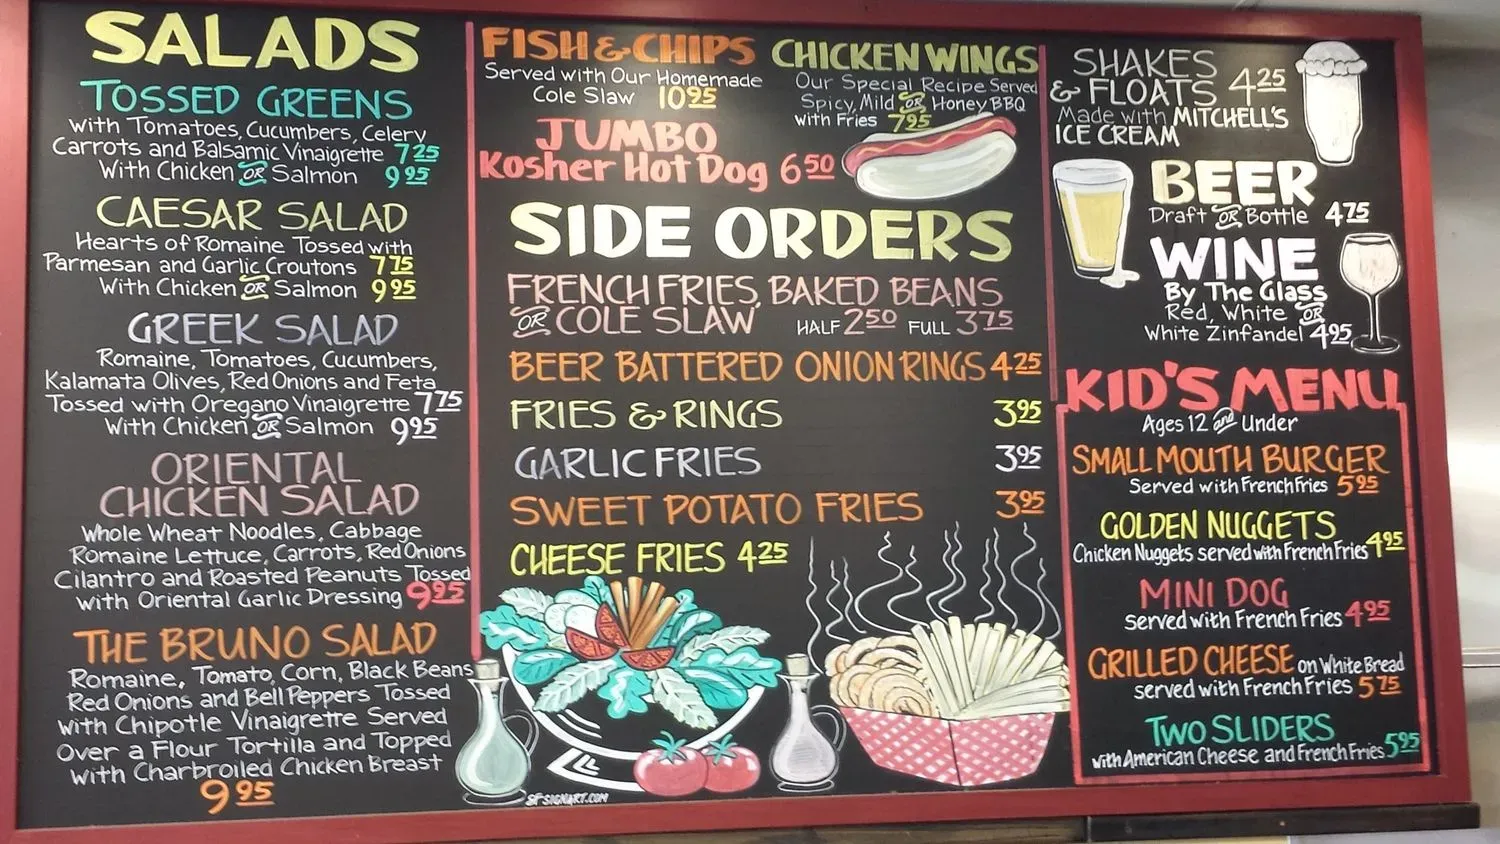 SALADS
TOSSED GREENS
with Tomatoes, Cucumbers, Celery
Carrots and Balsamic Vinaigrette 7 25
With Chicken OR Salmon 9 95
CAESAR SALAD
Hearts of Romaine Tossed with
Parmesan and Garlic Croutons 7 75
With Chicken OR Salmon 9 95
GREEK SALAD
Romaine, Tomatoes, Cucumbers,
Kalamata Olives, Red Onions and Feta
Tossed with Oregano Vinaigrette 7 75
With Chicken OR Salmon 9 95
ORIENTAL
CHICKEN SALAD
Whole Wheat Noodles, Cabbage
Romaine Lettuce, Carrots, Red Onions
Cilantro and Roasted Peanuts Tossed
with Oriental Garlic Dressing 9 95
THE BRUNO SALAD
Romaine, Tomato, Corn, Black Beans
Red Onions and Bell Peppers Tossed
with Chipotle Vinaigrette Served
Over a Flour Tortilla and Topped
with Charbroiled Chicken Breast
9 95
FISH & CHIPS
Served with Our Homemade
Cole Slaw 10 95
CHICKEN WINGS
Our Special Recipe Served
Spicy, Mild OR Honey BBQ
with Fries 7 95
JUMBO
Kosher Hot Dog 6 50
SIDE ORDERS
FRENCH FRIES, BAKED BEANS
OR COLE SLAW HALF 2 50 FULL 3 75
BEER BATTERED ONION RINGS 4 25
FRIES & RINGS 3 95
GARLIC FRIES 3 95
SWEET POTATO FRIES 3 95
CHEESE FRIES 4 25
SFSIGNART.COM
SHAKES
& FLOATS 4 25
Made with MITCHELL'S
ICE CREAM
BEER
Draft OR Bottle 4 75
WINE
By The Glass
Red, White OR
White Zinfandel 4 95
KID'S MENU
Ages 12 and Under
SMALL MOUTH BURGER
Served with French Fries 5 95
GOLDEN NUGGETS
Chicken Nuggets served with French Fries 4 95
MINI DOG
served with French Fries 4 95
GRILLED CHEESE on White Bread
served with French Fries 5 75
TWO SLIDERS
with American Cheese and French Fries 5 95